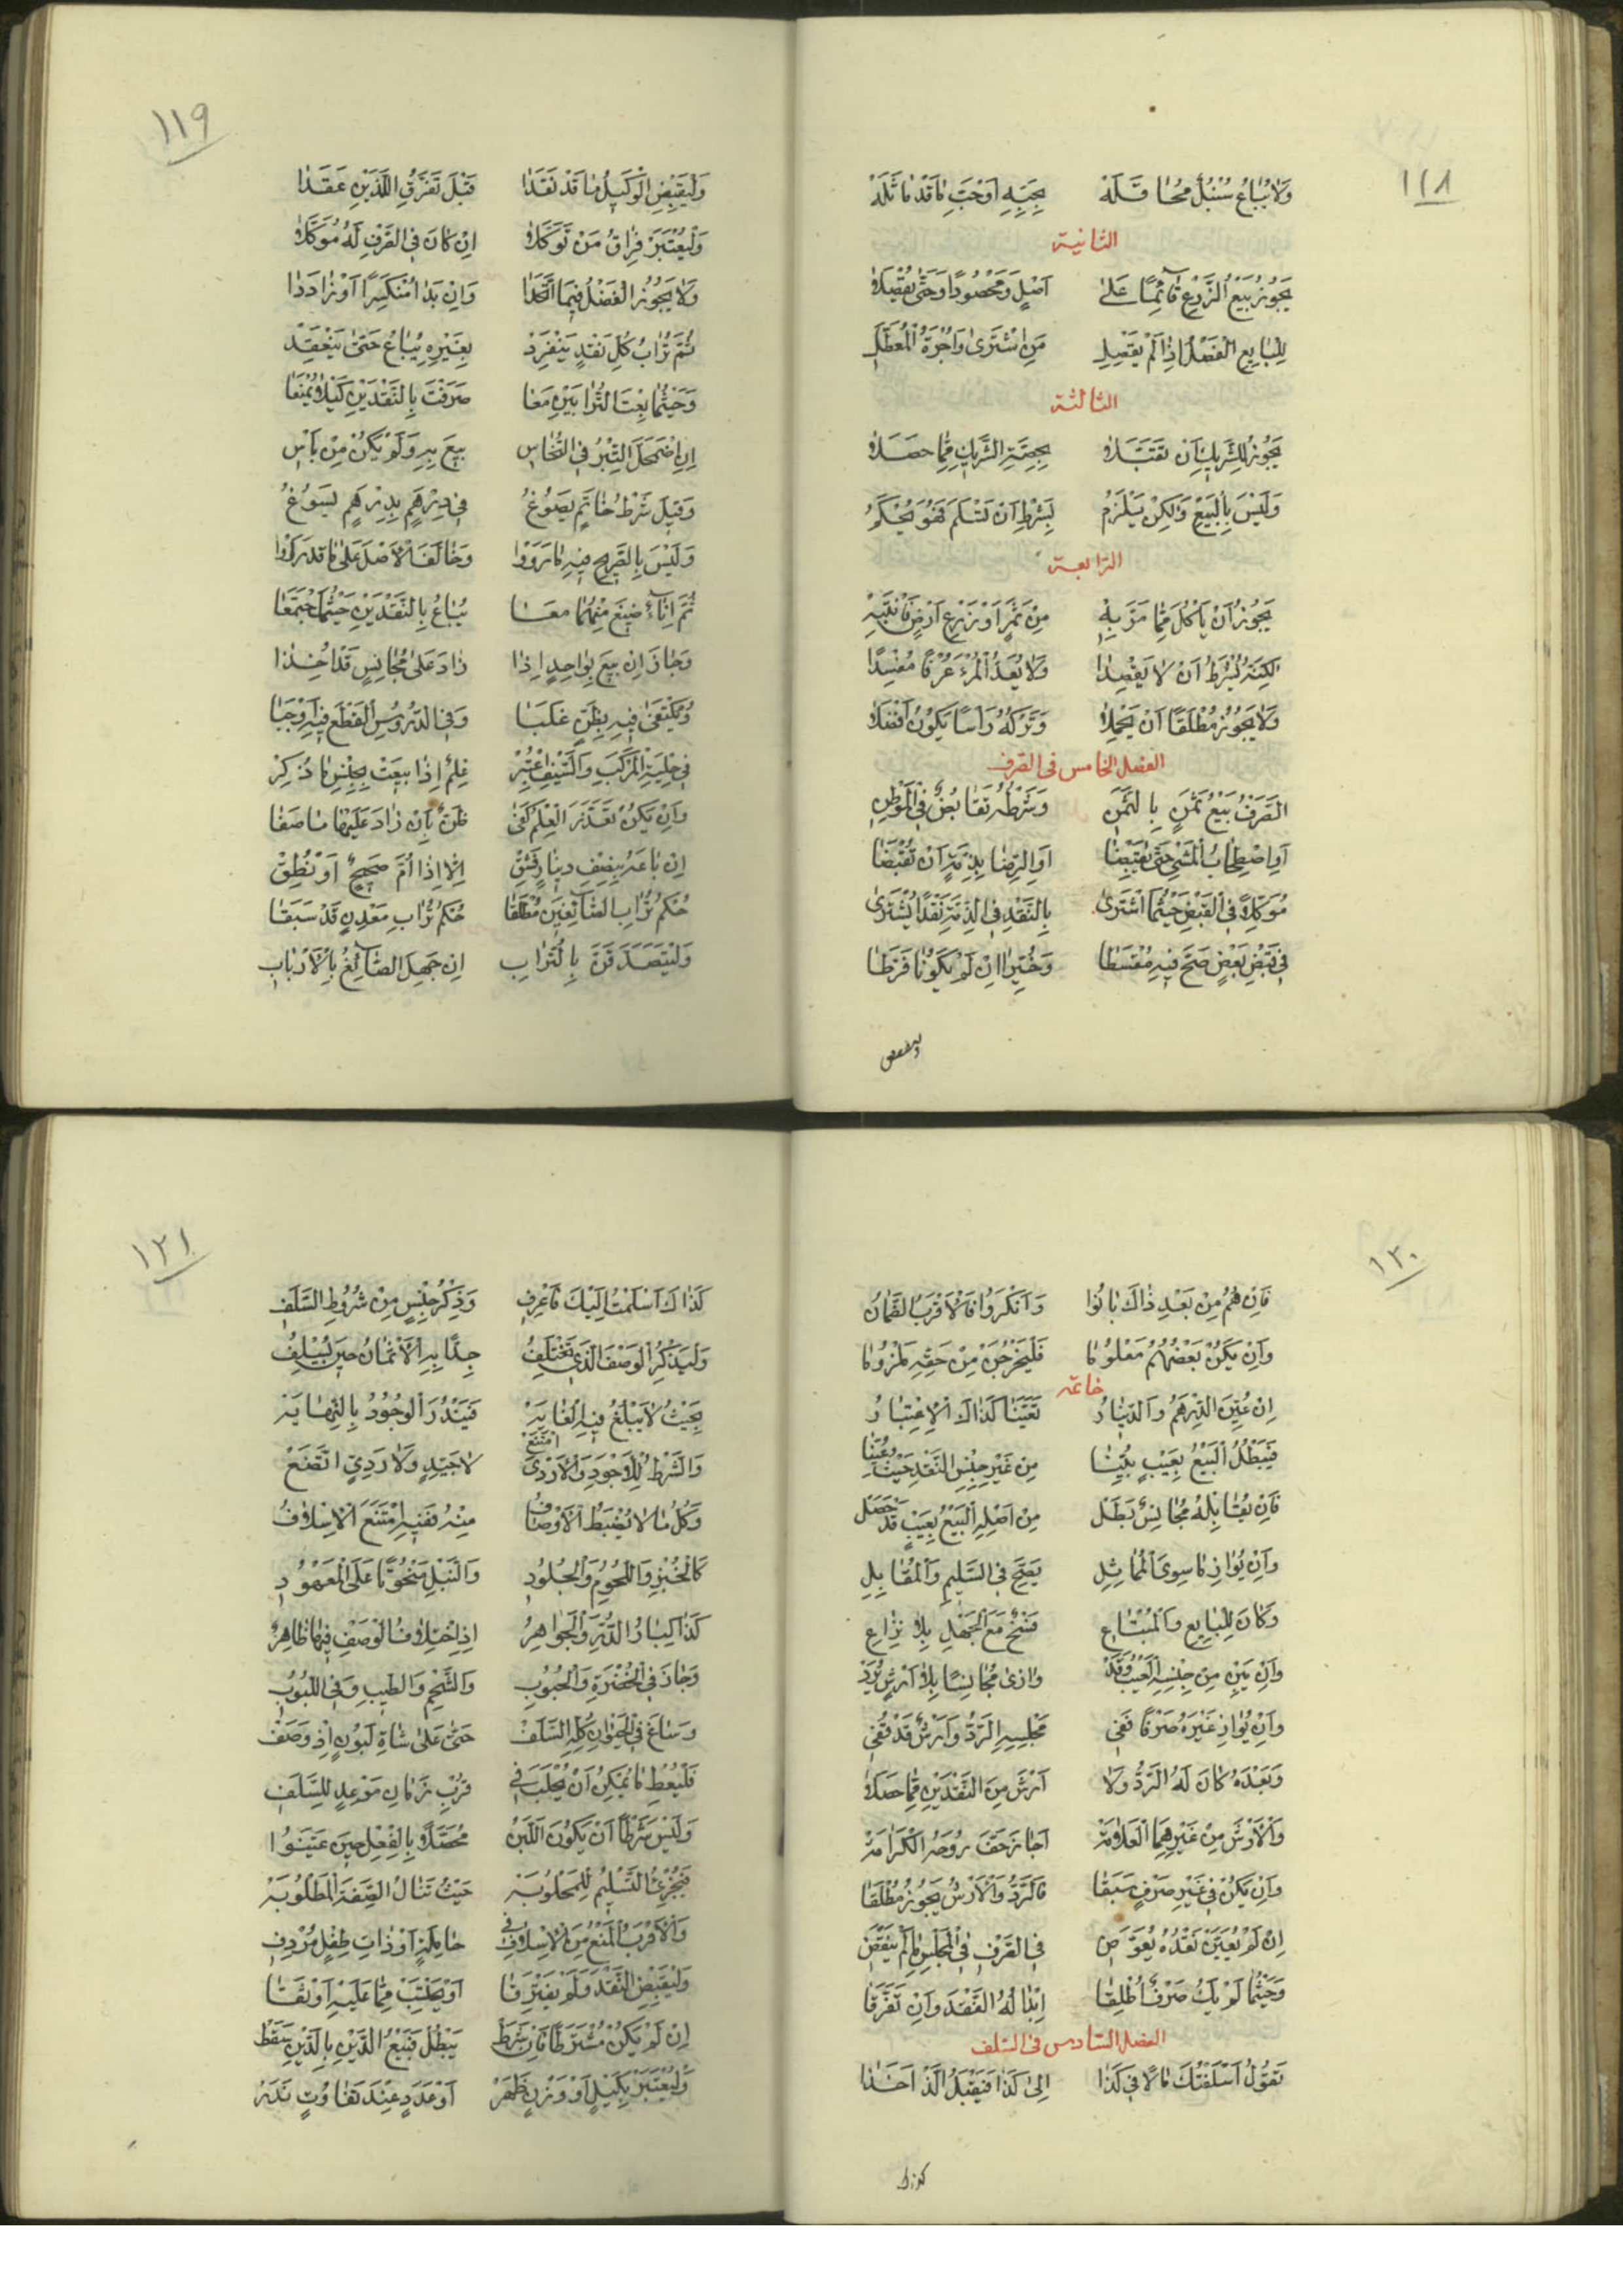 ١١٨
وَلَا يُبَاعُ سُنْبُلٌ مُحَاقَلَهْ بِحَبِّهِ أَوْ حَبِّ مَا قَدْ مَاثَلَهْ
الثانية
يَجُوزُ بَيْعُ الزَّرْعِ قَائِمًا عَلَى أَصْلٍ وَمَحْصُودًا وَحَتَّى يُفْصَلَا
لِلْبَايِعِ الْفَصْلُ إِذَا لَمْ يَفْصِلِ مَنِ اشْتَرَى وَأُجْرَةُ الْمُعَطَّلِ
الثالثة
يَجُوزُ لِلشَّرِيكِ أَنْ يَقْتَبَّلَا بِحِصَّةِ الشَّرِيكِ مِمَّا حَصَلَا
وَلَيْسَ بِالْبَيْعِ وَلَكِنْ يَلْزَمُ بِشَرْطِ أَنْ تَسْلَمَ فَهُوَ يُحْكَمُ
الرابعة
يَجُوزُ أَنْ يَأْكُلَ مِمَّا مَرَّ بِهِ مِنْ ثَمَرٍ أَوْ زَرْعِ أَرْضٍ فَانْتَبِهِ
لَكِنَّهُ يُشْرَطُ أَنْ لَا يَقْصِدَا وَلَا يُعَدُّ الْمَرْءُ عُرْفًا مُفْسِدَا
وَلَا يَجُوزُ مُطْلَقًا أَنْ يَحْمِلَا وَتَرْكُهُ رَأْسًا يَكُونُ أَفْضَلَا
الفصل الخامس في الصرف
الصَّرْفُ بَيْعُ ثَمَنٍ بِالثَّمَنِ وَشَرْطُهُ تَقَابُضٌ فِي الْمَوْطِنِ
أَوِ اصْطِحَابُ الْمَشْيِ حَتَّى يُقْبَضَا أَوِ الرِّضَا بِذِمَّةٍ أَنْ تُقْبَضَا
مُوَكِّلًا فِي الْقَبْضِ حَيْثُمَا اشْتَرَى بِالنَّقْدِ فِي الذِّمَّةِ نَقْدًا يُشْتَرَى
فِي قَبْضِ بَعْضٍ صَحَّ فِيهِ مُقْسَطَا وَخُيِّرَا إِنْ لَمْ يَكُونَا فَرَّطَا
١١٩
وَلْيَقْبِضِ الْوَكِيلُ مَا قَدْ نَقَدَا قَبْلَ تَفَرُّقِ اللَّذَيْنِ عَقَدَا
وَلْيُعْتَبَرْ فِرَاقُ مَنْ تَوَكَّلَا إِنْ كَانَ فِي الصَّرْفِ لَهُ مُوَكَّلَا
وَلَا يَجُوزُ الْفَضْلُ فِيمَا اتَّحَدَا وَإِنْ بَدَا مُنْكَسِرًا أَوْ زَادَ دَا
ثُمَّ تُرَابُ كُلِّ نَقْدٍ يَنْفَرِدْ بِغَيْرِهِ يُبَاعُ حَتَّى يَنْعَقِدْ
وَحَيْثُمَا بِعْتَ التُّرَابَيْنِ مَعَا صَرَفْتَ بِالنَّقْدَيْنِ كَيْلَا يُمْنَعَا
إِنِ اضْمَحَلَّ التِّبْرُ فِي النُّحَاسِ بِيعَ بِهِ وَلَمْ يَكُنْ مِنْ بَاسِ
وَقِيلَ شَرْطُ خَاتَمٍ يَصُوغُ فِي دِرْهَمٍ بِدِرْهَمٍ يَسُوغُ
وَلَيْسَ بِالصَّرِيحِ فِيهِ مَا رَوَوْا وَخَالَفَ الْأَصْلَ عَلَى مَا قَدْ رَكَوْا
ثُمَّ إِنَاءٌ صِيغَ مِنْهُمَا مَعَا يُبَاعُ بِالنَّقْدَيْنِ حَيْثُمَا اجْتَمَعَا
وَجَازَ إِنْ بِيعَ بِوَاحِدٍ إِذَا زَادَ عَلَى مُجَانِسٍ قَدْ أُخِذَا
وَيُكْتَفَى فِيهِ بِظَنٍّ غَلَبَا وَفِي الدُّرُوسِ الْقَطْعُ فِيهِ أُوجِبَا
فِي حِلْيَةِ الْمَرْكَبِ وَالسَّيْفِ اعْتُبِرْ عِلْمٌ إِذَا بِيعَتْ بِجِنْسِ مَا ذُكِرْ
وَإِنْ يَكُنْ تَعَذَّرَ الْعِلْمُ كَفَى ظَنٌّ بِأَنْ زَادَ عَلَيْهَا مَا صَفَا
إِنْ بَاعَهُ بِنِصْفِ دِينَارٍ فَشِقْ إِلَّا إِذَا أُمَّ صَحِيحٌ أَوْ نُطِقْ
حُكْمُ تُرَابِ الصَّائِغِينَ مُطْلَقَا حُكْمُ تُرَابِ مَعْدِنٍ قَدْ سَبَقَا
وَلْيُتَصَدَّقَنَّ بِالتُّرَابِ إِنْ جَهِلَ الصَّائِغُ بِالْأَرْبَابِ
١٢٠
فَإِنْ هُمُ مِنْ بَعْدِ ذَاكَ بَانُوا وَأَنْكَرُوا فَالْأَقْرَبُ الضَّمَانُ
وَإِنْ يَكُنْ بَعْضُهُمُ مَعْلُومَا فَلْيَخْرُجَنْ مِنْ حَقِّهِ مَلْزُومَا
خاتمة
إِنْ عُيِّنَ الدِّرْهَمُ وَالدِّينَارُ تَعَيَّنَا كَذَلِكَ الْاِعْتِبَارُ
فَيَبْطُلُ الْبَيْعُ بِعَيْبٍ بُيِّنَا مِنْ غَيْرِ جِنْسِ النَّقْدِ حَيْثُ عُيِّنَا
فَإِنْ يُقَابِلْهُ مُجَانِسٌ بَطَلْ مِنْ أَصْلِهِ الْبَيْعُ بِعَيْبٍ قَدْ حَصَلْ
وَإِنْ يُوَازِ مَا سِوَى الْمُمَاثِلِ يَصِحَّ فِي السَّلِيمِ وَالْمُقَابِلِ
وَكَانَ لِلْبَايِعِ وَالْمُبْتَاعِ فَسْخٌ مَعَ الْجَهْلِ بِلَا نِزَاعِ
وَإِنْ يَبِنْ مِنْ جِنْسِهِ الْعَيْبُ وَقَدْ وَازَى مُجَانِسًا بِلَا أَرْشٍ يُرَدْ
وَإِنْ يُوَازِ غَيْرَهُ صَرْفًا فَفِي مَجْلِسِهِ الرَّدُّ وَأَرْشٌ قَدْ قُفِي
وَبَعْدَهُ كَانَ لَهُ الرَّدُّ وَلَا أَرْشَ مِنَ النَّقْدَيْنِ مِمَّا حَصَلَا
وَالْأَرْشُ مِنْ غَيْرِهِمَا الْعَلَّامَهْ أَجَازَ حَفَّ رُوحَهُ الْكَرَامَهْ
وَإِنْ يَكُنْ فِي غَيْرِ صَرْفٍ سَبَقَا فَالرَّدُّ وَالْأَرْشُ يَجُوزُ مُطْلَقَا
إِنْ لَمْ يُعَيَّنْ نَقْدُهُ يُعَوَّضِ فِي الصَّرْفِ فِي الْمَجْلِسِ مَا لَمْ يَنْقَضِ
وَحَيْثُمَا لَمْ يَكُ صَرْفٌ أُطْلِقَا إِبْدَالُهُ النَّقْدَ وَإِنْ تَفَرَّقَا
الفصل السادس في السلف
تَقُولُ أَسْلَفْتُكَ مَالًا فِي كَذَا إِلَى كَذَا فَيَقْبَلُ الَّذْ أَخَذَا
كذاك
١٢١
كَذَاكَ أَسْلَمْتُ إِلَيْكَ فَاعْرِفِ وَذِكْرُ جِنْسٍ مِنْ شُرُوطِ السَّلَفِ
وَلْيَذْكُرِ الْوَصْفَ الَّذِي تَخْتَلِفُ جِدًّا بِهِ الْأَثْمَانُ حِينَ يُسْلِفُ
بِحَيْثُ لَا يَبْلُغُ فِيهِ الْغَايَهْ فَيَنْدُرَ الْوُجُودُ بِالنِّهَايَهْ
وَالشَّرْطُ لِلْأَجْوَدِ وَالْأَرْدَى امْتَنَعْ لَا جَيِّدٍ وَلَا رَدِيٍّ اتَّضَعْ
وَكُلُّ مَا لَا يُضْبَطُ الْأَوْصَافُ مِنْهُ فَفِيهِ امْتَنَعَ الْإِسْلَافُ
كَالْخُبْزِ وَاللُّحُومِ وَالْجُلُودِ وَالنَّبْلِ مَنْحُوتًا عَلَى الْمَعْهُودِ
كَذَا كِبَارُ الدُّرِّ وَالْجَوَاهِرُ إِذِ اخْتِلَافُ الْوَصْفِ فِيهَا ظَاهِرُ
وَجَازَ فِي الْخُضْرَةِ وَالْحُبُوبِ وَالشَّحْمِ وَالطِّيبِ وَفِي اللُّبُوبِ
وَسَاغَ فِي الْحَيَوَانِ كُلِّهِ السَّلَفْ حَتَّى عَلَى شَاةِ لَبُونٍ إِذْ وَصَفْ
فَلْيُعْطِ مَا يُمْكِنُ أَنْ يُحْلَبَ فِي قُرْبِ زَمَانِ مَوْعِدٍ لِلسَّلَفِ
وَلَيْسَ شَرْطًا أَنْ يَكُونَ اللَّبَنُ مُحَصَّلًا بِالْفِعْلِ حِينَ عَيَّنُوا
فَيُجْزِئُ التَّسْلِيمُ لِلْمَحْلُوبَهْ حَيْثُ تَنَالُ الصِّفَةَ الْمَطْلُوبَهْ
وَالْأَقْرَبُ الْمَنْعُ مِنَ الْإِسْلَافِ فِي حَامِلَةٍ أَوْ ذَاتِ طِفْلٍ مُرْدِفِ
وَلْيَقْبِضِ النَّقْدَ وَلَمْ يَفْتَرِقَا أَوْ يَحْتَسِبْ مِمَّا عَلَيْهِ أَوْثَقَا
إِنْ لَمْ يَكُنْ مُشْتَرَطًا فَإِنْ شَرَطْ يَبْطُلْ فَبَيْعُ الدَّيْنِ بِالدَّيْنِ سَقَطْ
وَلْيُعْتَبَرْ بِكَيْلٍ أَوْ وَزْنٍ ظَهَرْ أَوْ عَدَدٍ عِنْدَ تَفَاوُتٍ نَدَرْ